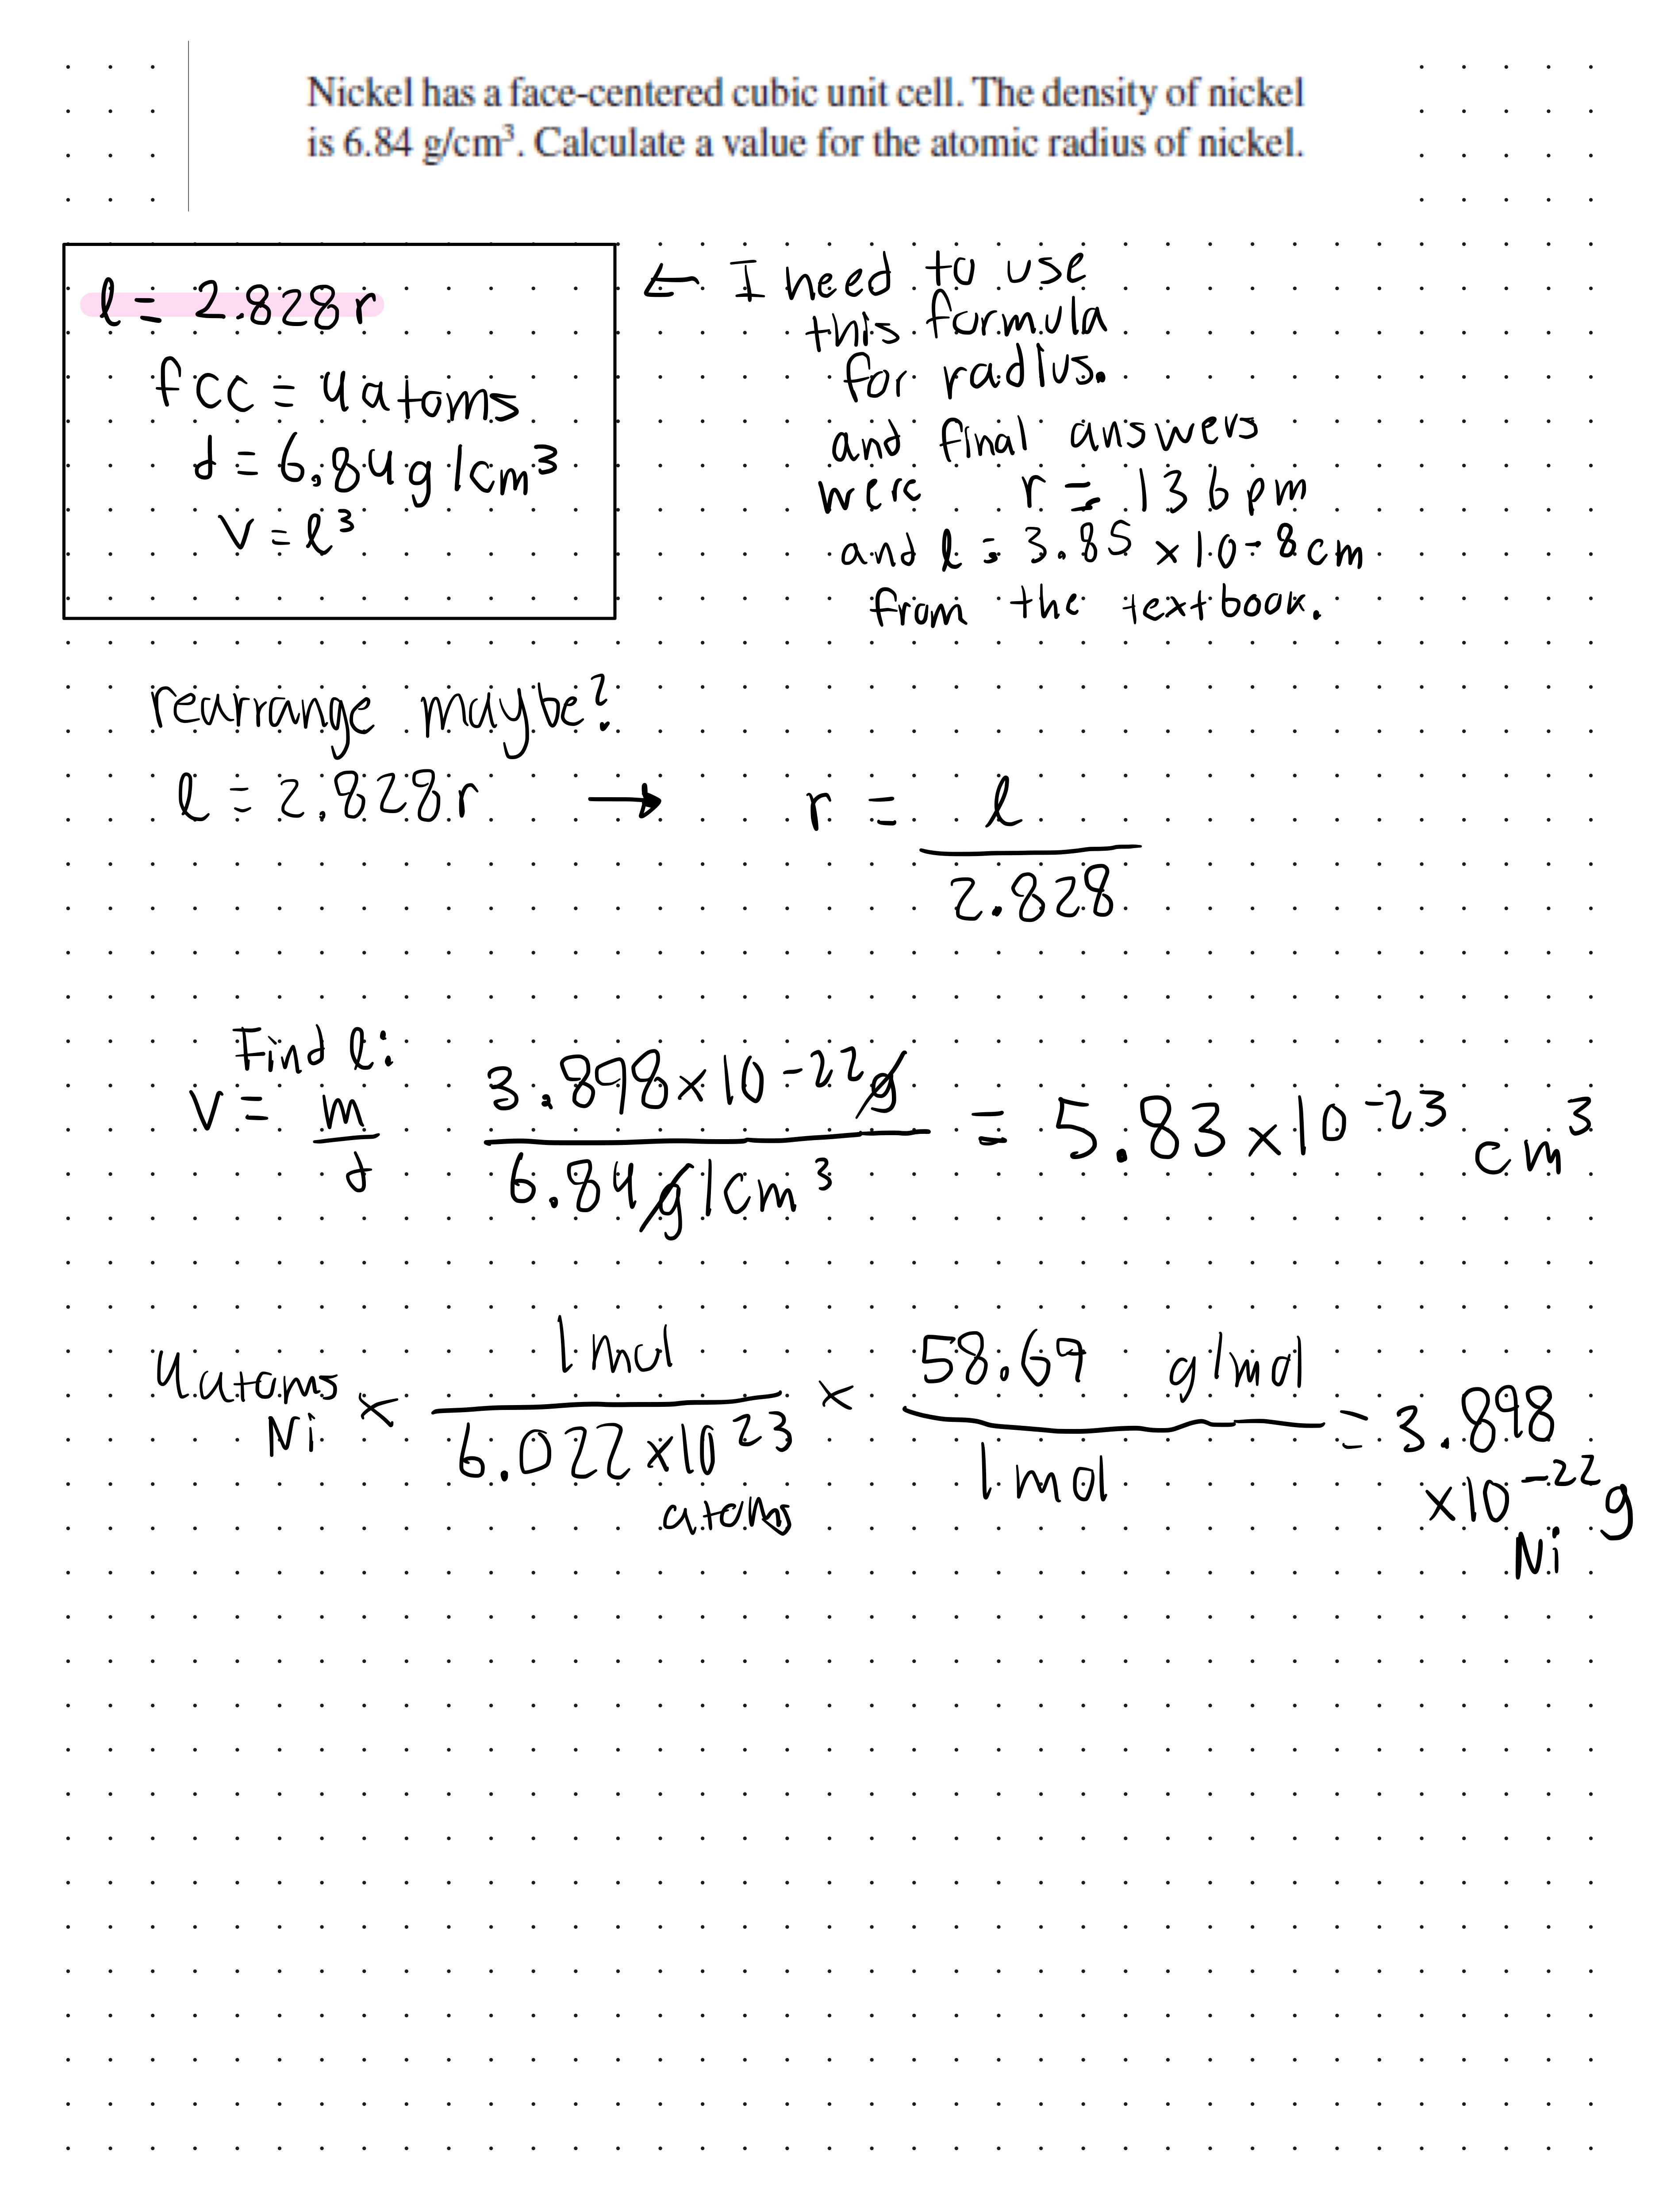 Nickel has a face-centered cubic unit cell. The density of nickel
is 6.84 g/cm³. Calculate a value for the atomic radius of nickel.
l = 2.828 r
fcc = 4 atoms
d = 6.84 g/cm³
V = l³
← I need to use
this formula
for radius.
and final answers
were r = 136 pm
and l = 3.85 x 10-8 cm
from the textbook.
rearrange maybe?
l = 2.828 r → r = l / 2.828
Find l:
V = m / d
3.898 x 10⁻²² g / 6.84 g/cm³ = 5.83 x 10⁻²³ cm³
4 atoms Ni x 1 mol / 6.022 x 10²³ atoms x 58.69 g/mol / 1 mol = 3.898
x 10⁻²² g
Ni